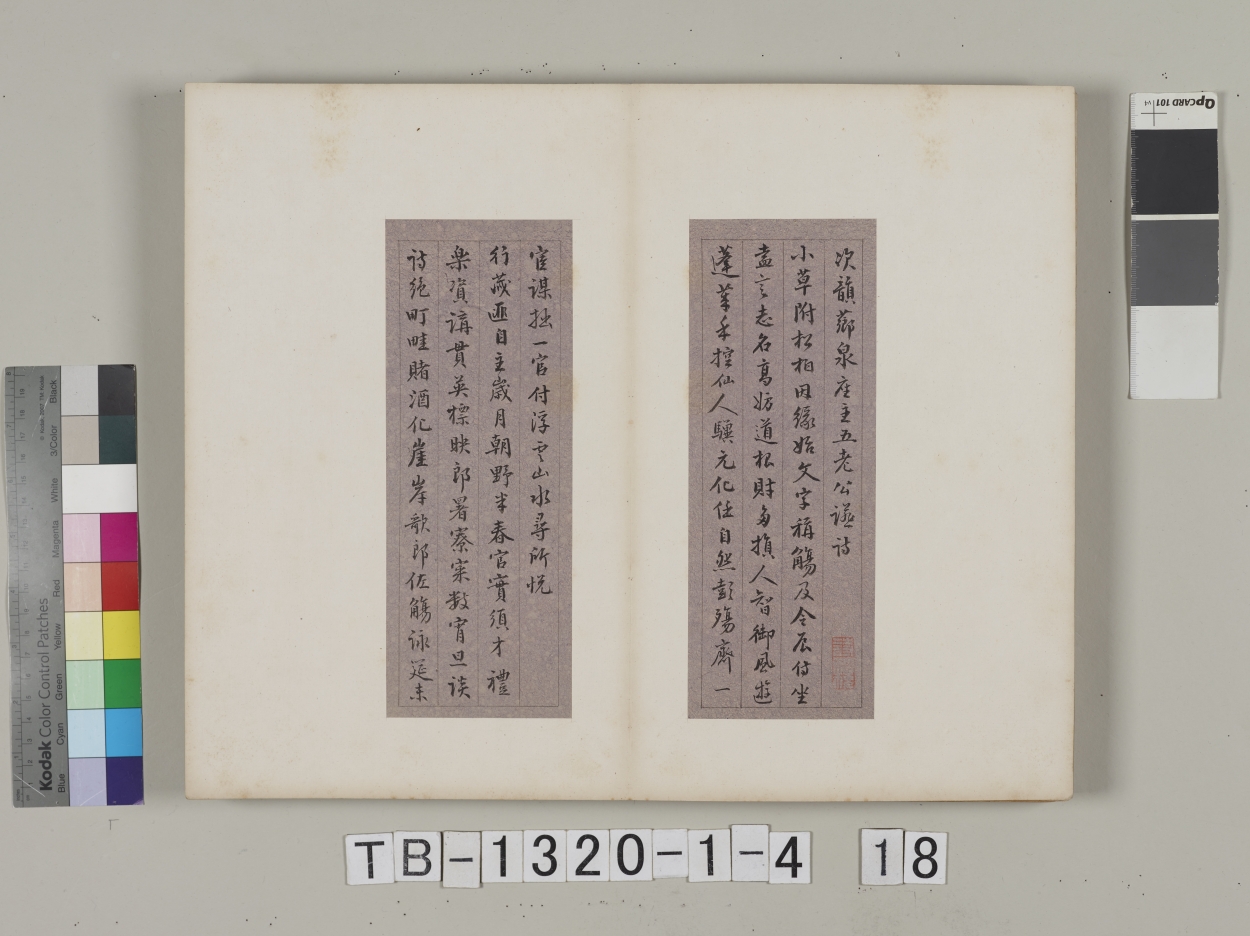 次韻薌泉座主五老公讌詩
小草附松柏因緣始文字稱觴及令辰侍坐
盍言志名高妨道根財多損人智御風遊
蓬萊手控仙人驥元化任自然彭殤齊一
宦謀拙一官付浮雲山水尋所悅
行藏匪自主歲月朝野半春官實須才禮
樂資講貫英標映郎署寮寀數宵旦談
詩絕町畦賭酒化崖岸歌郎佐觴詠筵未
TB-1320-1-4 18
QPCARD 101 v4
Kodak Color Control Patches
Blue Cyan Green Yellow Red Magenta White 3/Color Black